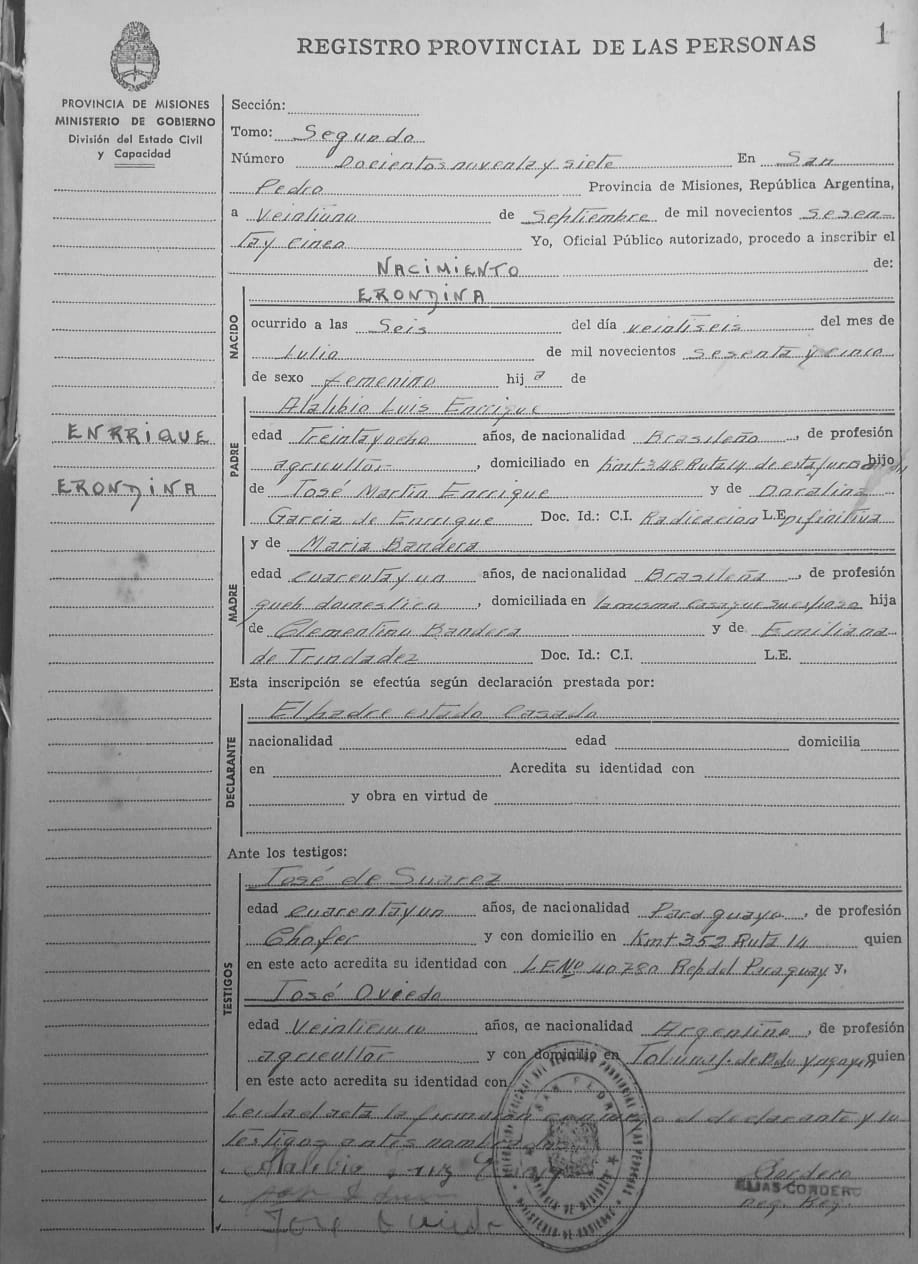 1
REGISTRO PROVINCIAL DE LAS PERSONAS
PROVINCIA DE MISIONES
MINISTERIO DE GOBIERNO
División del Estado Civil
y Capacidad
ENRRIQUE
ERONDINA
Sección:
Tomo: Segundo
Número Docientos noventa y siete En San
Pedro Provincia de Misiones, República Argentina,
a Veintiuno de Septiembre de mil novecientos Sesen
ta y cinco Yo, Oficial Público autorizado, procedo a inscribir el
NACIMIENTO de:
NACIDO
ERONDINA
ocurrido a las Seis del día veintiseis del mes de
Julio de mil novecientos Sesenta y cinco
de sexo femenino hija de
PADRE
Luis Enrrique
edad Treintayocho años, de nacionalidad Brasileño, de profesión
agricultor, domiciliado en Kmt 348 Ruta 14 de esta hijo
de José Martín Enrrique y de Doralina
Garcia de Enrrique Doc. Id.: C.I. Radicacion L.E. Difinitiva
MADRE
y de Maria Bandera
edad cuarentayun años, de nacionalidad Brasileña, de profesión
queh domestico, domiciliada en la misma Casa que su esposo hija
de Clementino Bandera y de Emiliana
de Trindadez Doc. Id.: C.I. L.E.
Esta inscripción se efectúa según declaración prestada por:
DECLARANTE
El padre estado Casado
nacionalidad edad domicilia
en Acredita su identidad con
y obra en virtud de
Ante los testigos:
TESTIGOS
José de Suarez
edad cuarentayun años, de nacionalidad Paraguayo, de profesión
Chofer y con domicilio en Kmt 352 Ruta 14 quien
en este acto acredita su identidad con L.E Nº 40780 Rep del Paraguay y,
José Oviedo
edad Veinticinco años, de nacionalidad Argentino, de profesión
agricultor y con domicilio en quien
en este acto acredita su identidad con
Leida el acta la firmaron conmigo el declarante y los
testigos antes nombrados
José Oviedo
Cordero
ELIAS CORDERO